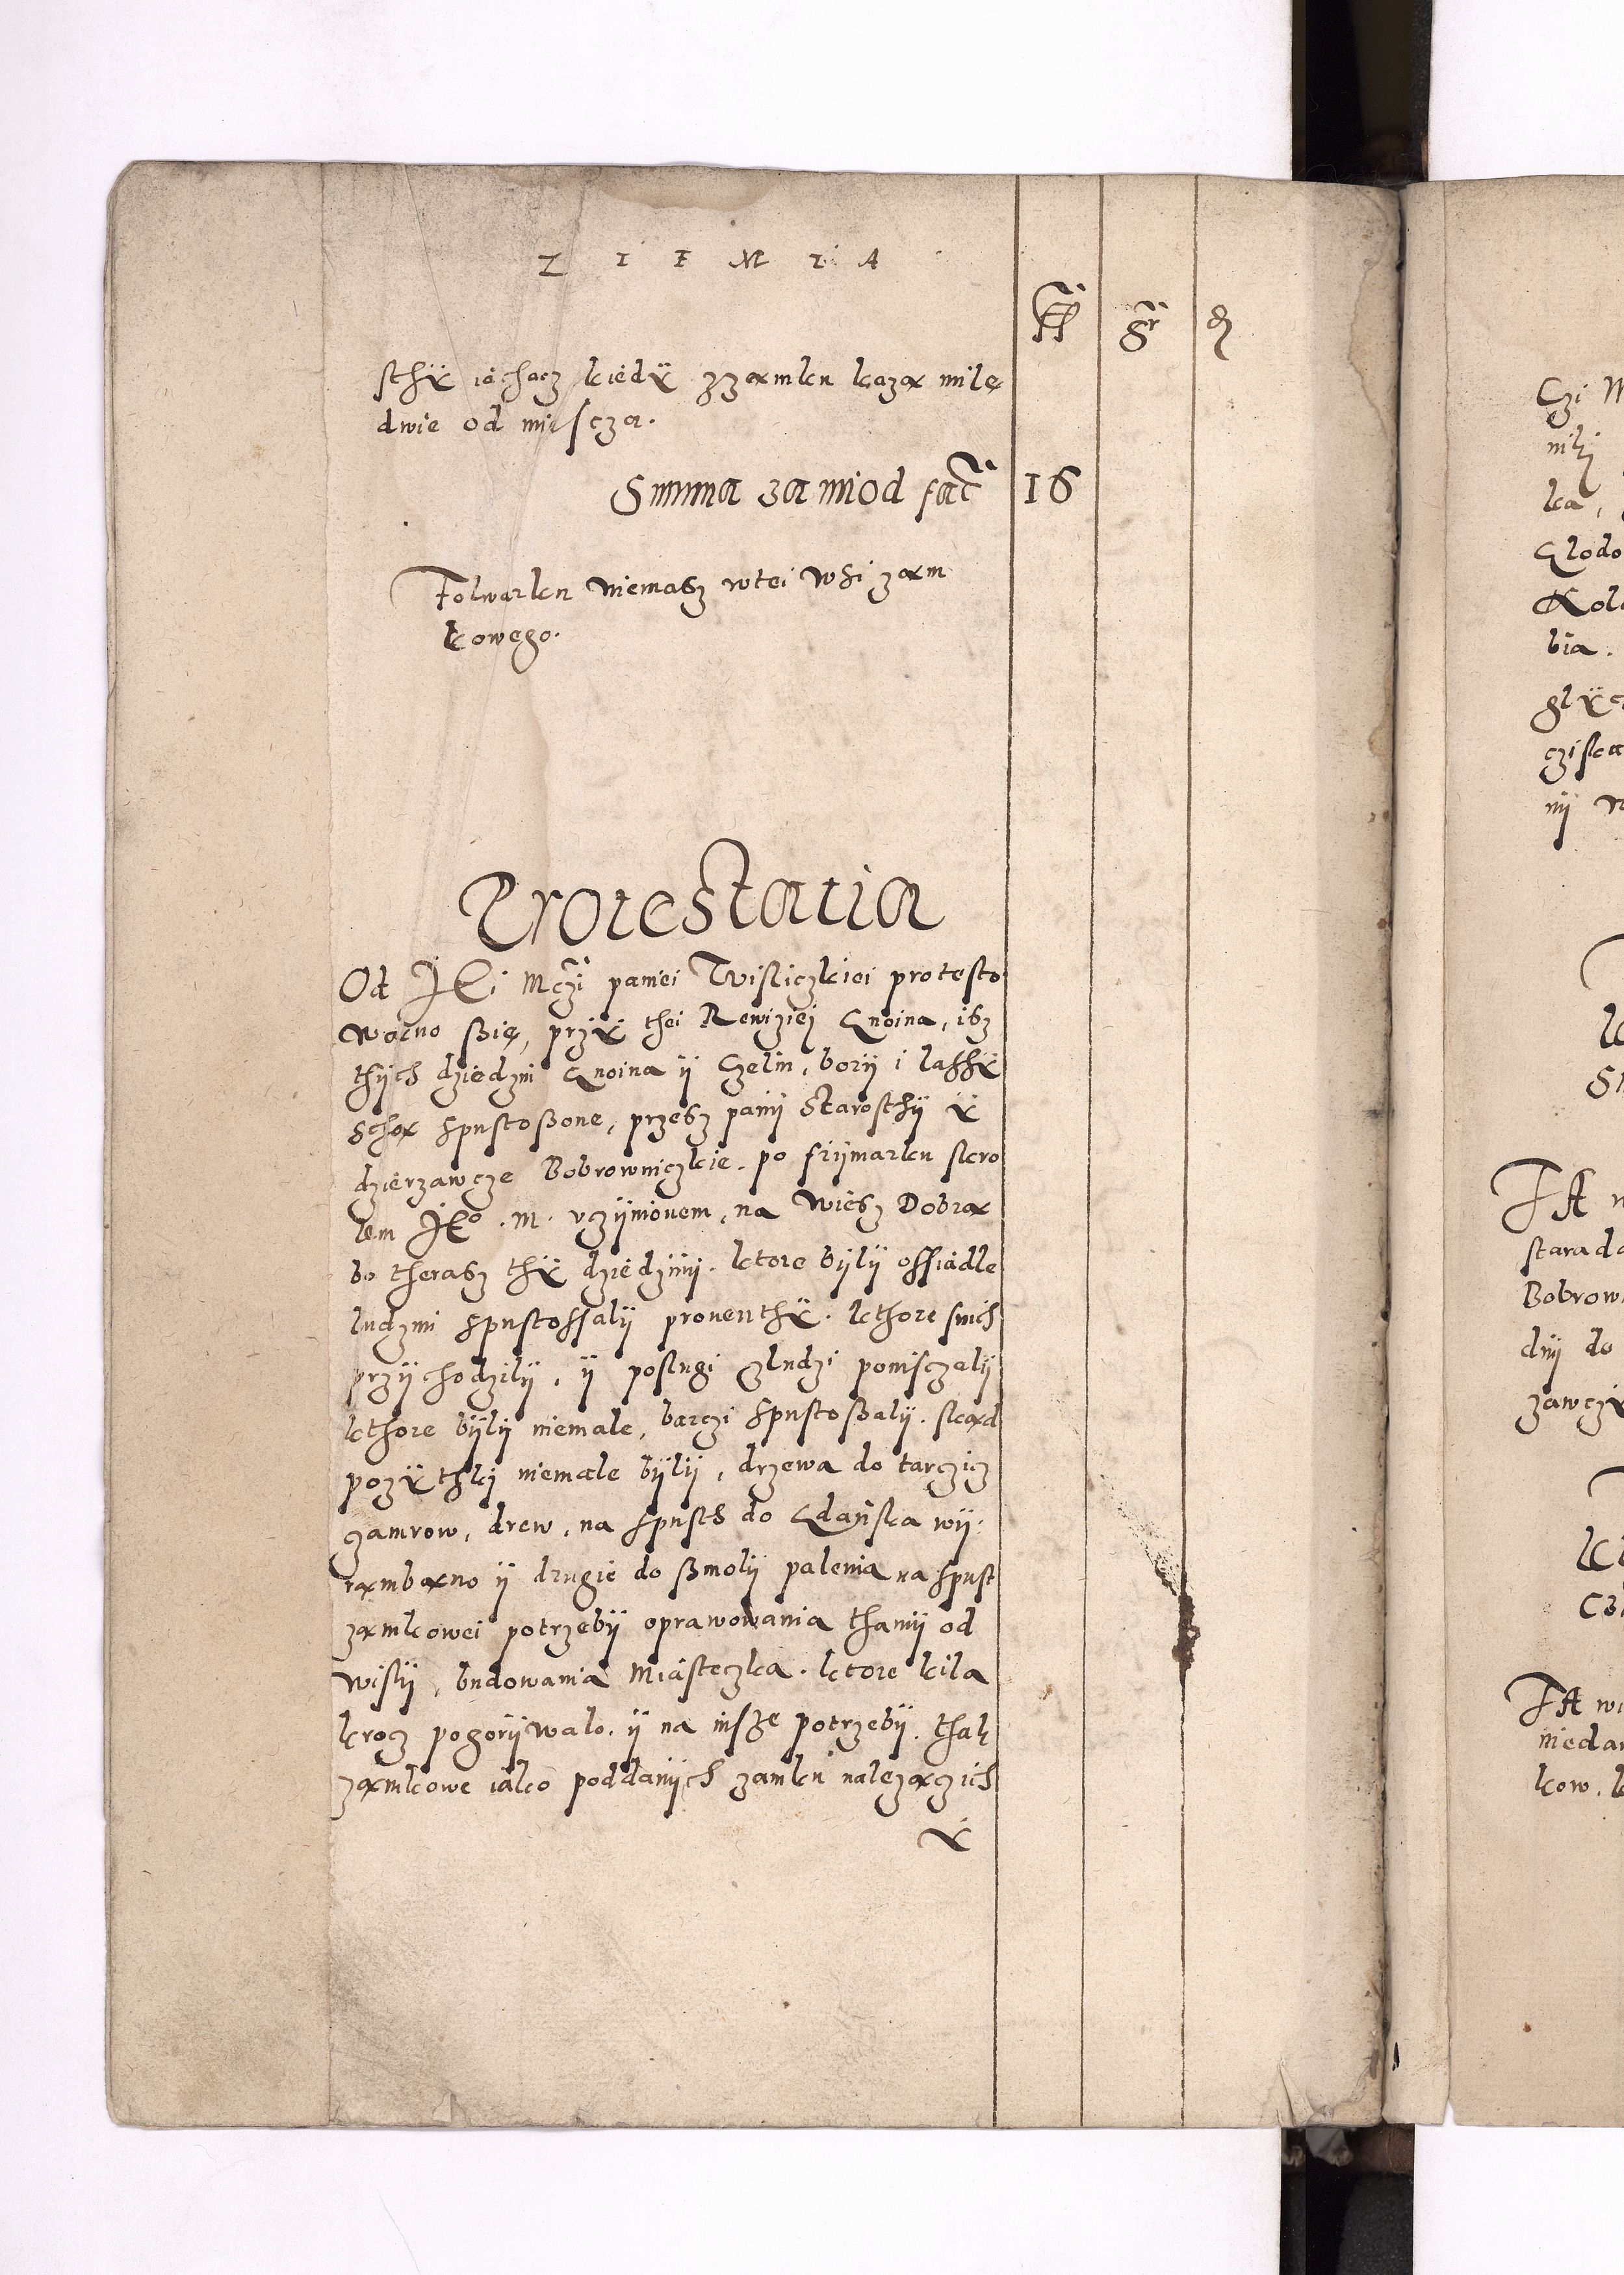 Z I E M I A
fl gr d
sthÿ iechacz kiedÿ zzamku kaza mile
dwie od miescza.
Summa za miod facit 16
Folwarku niemasz wtei wsi zam
kowego.
Protestatia
Od JKi Mczi paniei Twisliczkiei protesto
wano ßie, przÿ thei Rewiziei Gnoina, isz
thijch dziedzin Gnoina ij Czelin, borij i lassÿ
scha spustoßone, przesz panij Starosthij ÿ
dzierzawcze Bobrowniczkie. po frijmarku skro
lem JKo. M. vczijnionem, na Wiesz Dobra
bo therasz thÿ dziedzinij. ktore bijlij ossiadle
ludzmi spustossalij prouenthÿ. kthore snich
przijchodzilij, ij poslugi zludzi poniszczalij
kthore bijlij niemale, barzi spustoßalij. skad
pozÿthkj niemale bijlij, drzewa do tarczicz
zamrow, drew, na spusth do Gdańska wij.
rambano ij drugie do ßmolij palenia na spust
zamkowei potrzebij oprawowania thamij od
Wislij, budowania Miasteczka. ktore kila
krocz pogorijwalo. ij na insze potrzebij. thak
zamkowe iako poddanijch zamku nalezaczich
ÿ
Czi M
nilj
ka,
Glodo
Kol
bia.
glÿc
cziska
nij
TA w
starada
Bobrow
dnij do
zawczÿ
TA wi
nieda
kow. k